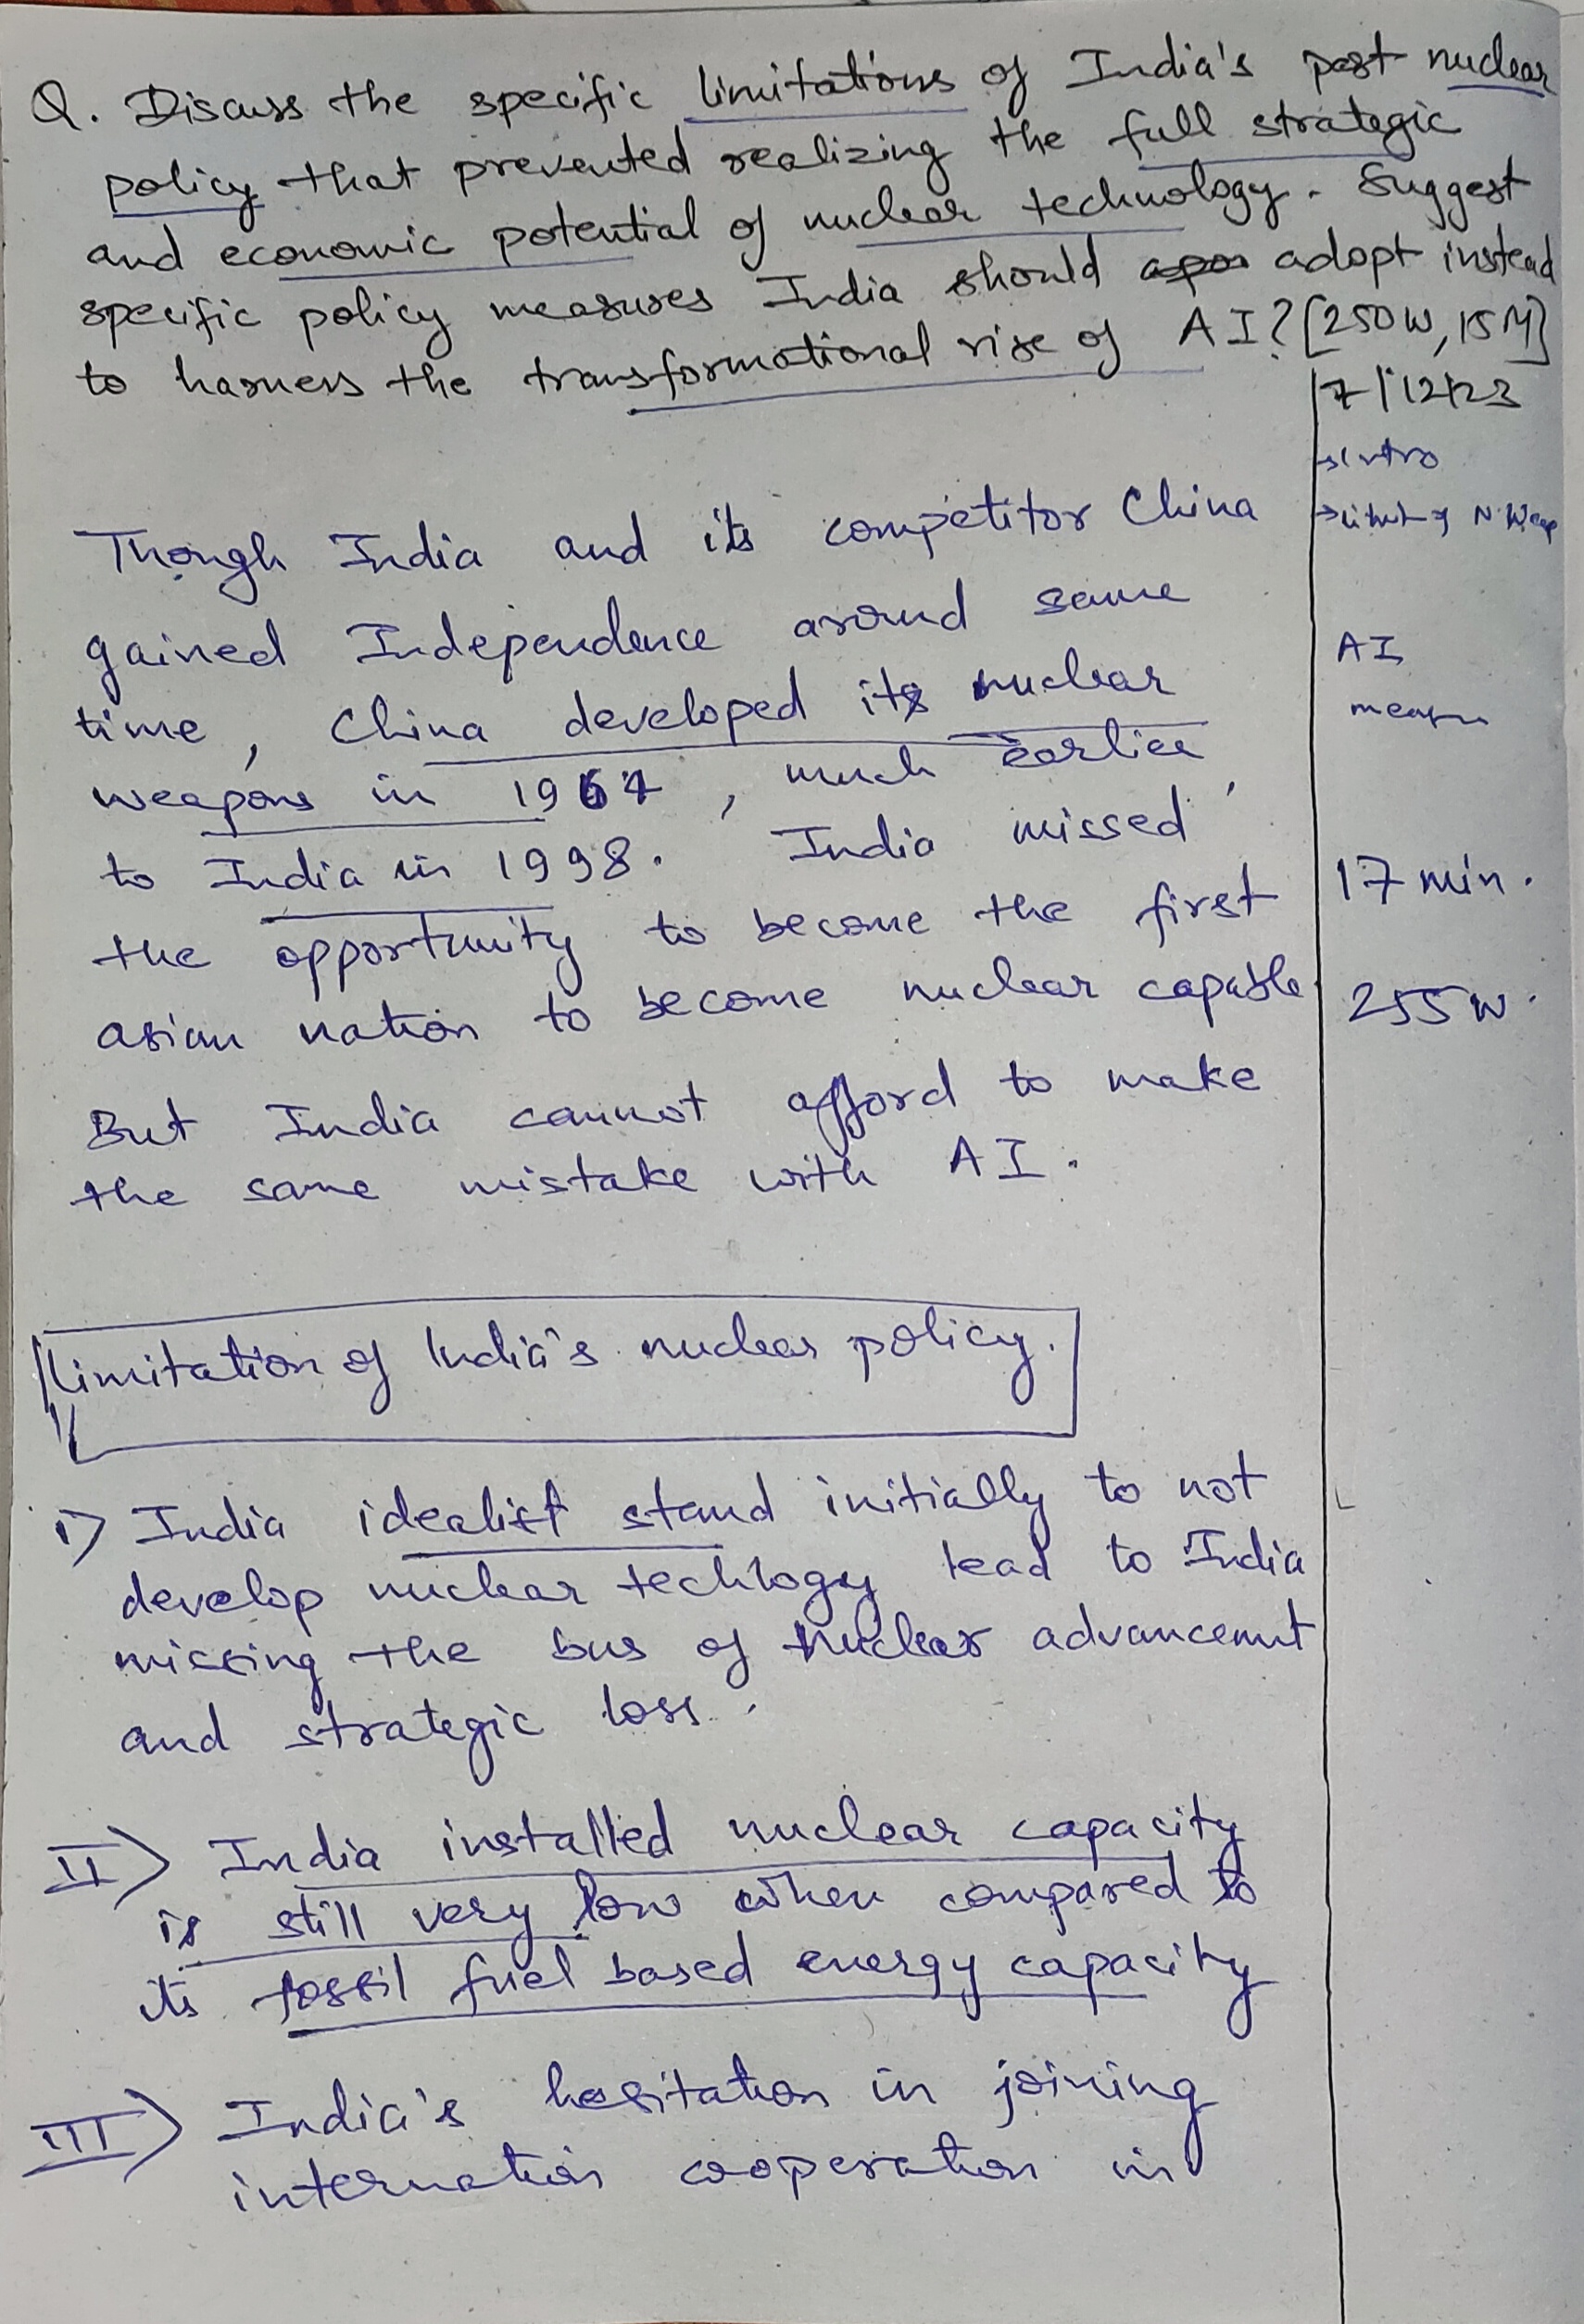 Q. Discuss the specific limitations of India's past nuclear
policy that prevented realizing the full strategic
and economic potential of nuclear technology. Suggest
specific policy measures India should adopt instead
to harness the transformational rise of AI? [250W, 15M]
17/12/23
→intro
→limit of N. Weap
AI
17 min.
255 W.
Though India and its competitor China
gained Independence around same
time, China developed its nuclear
weapons in 1964, much earlier
to India in 1998. India missed
the opportunity to become the first
asian nation to become nuclear capable
But India cannot afford to make
the same mistake with AI.
limitation of India's nuclear policy.
i) India idealist stand initially to not
develop nuclear techlogy lead to India
missing the bus of Nuclear advancemnt
and strategic loss.
II) India installed nuclear capacity
is still very low when compared to
its fossil fuel based energy capacity
III) India's hesitation in joining
internation cooperation in